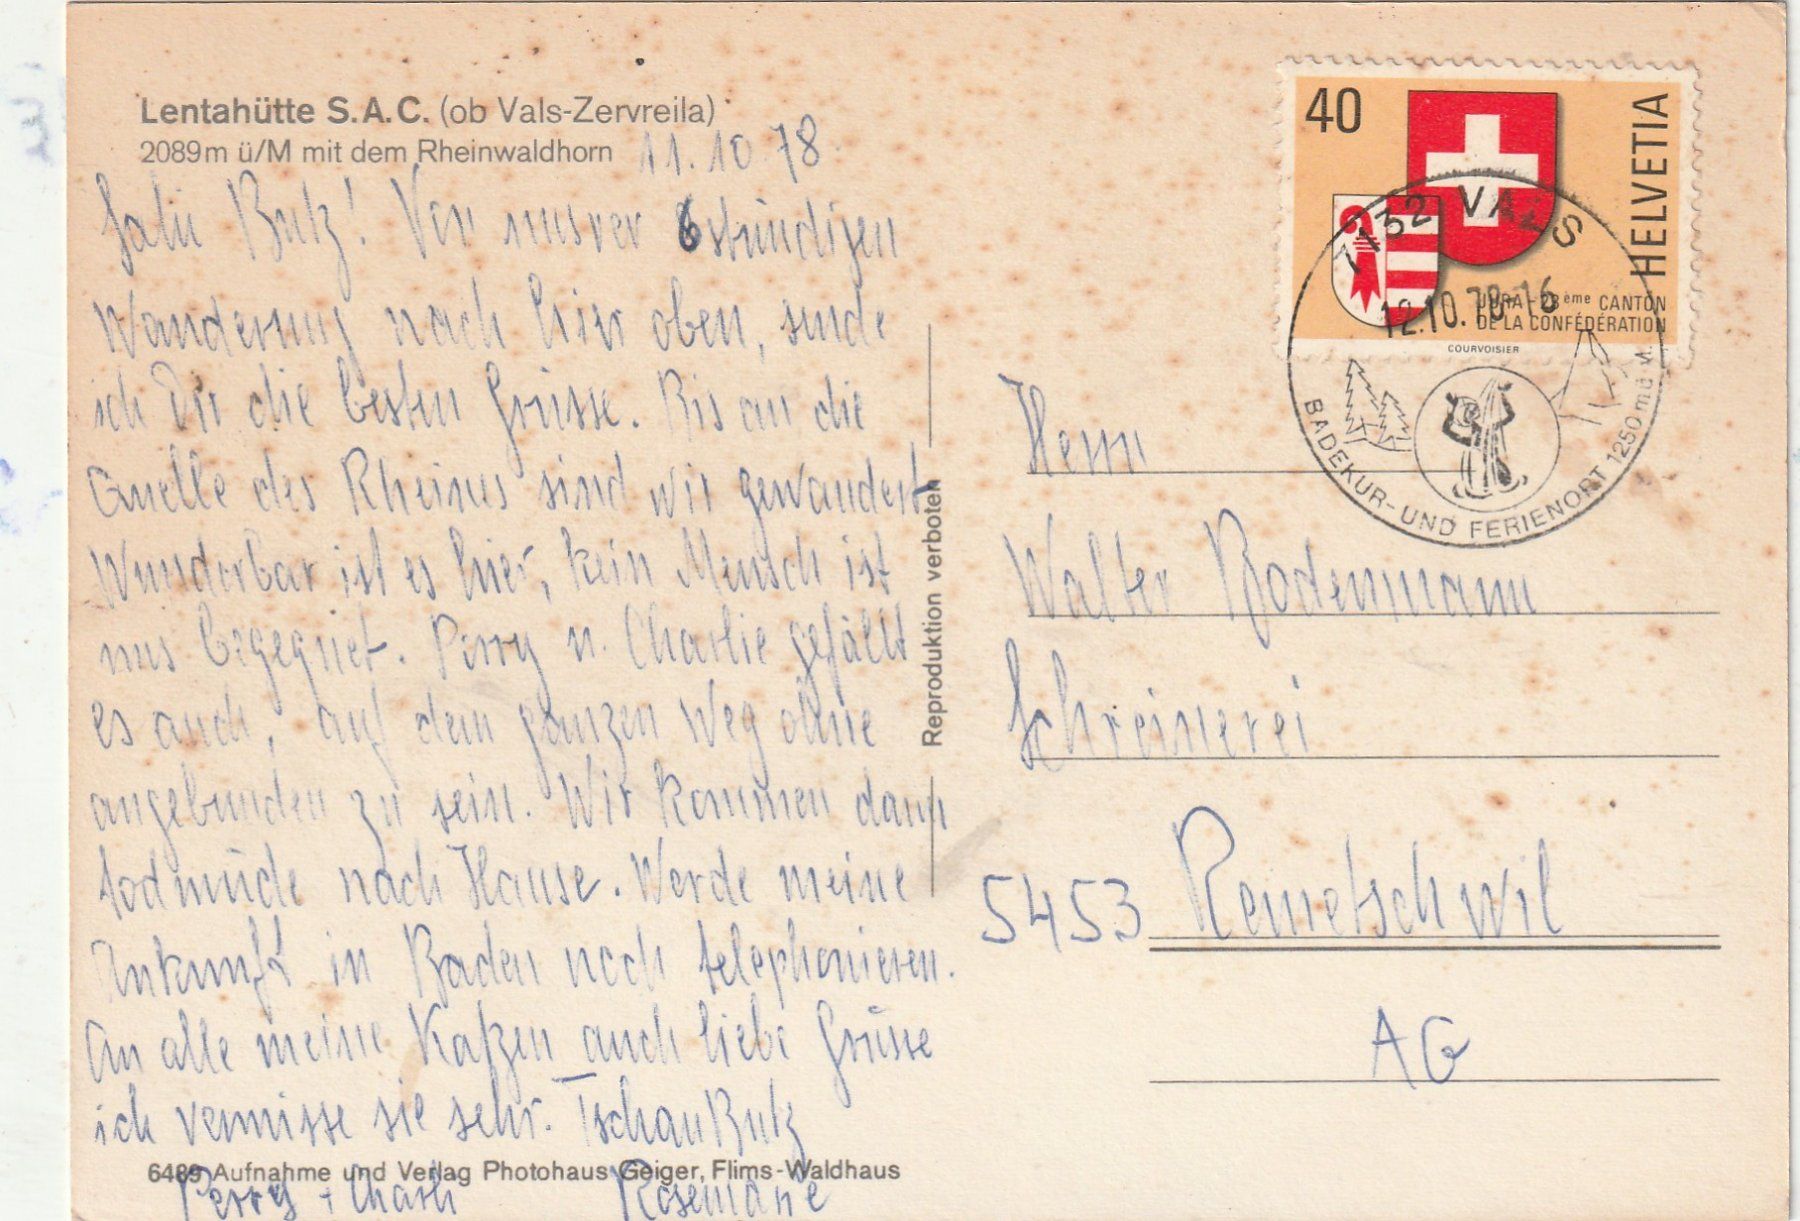 Lentahütte S.A.C. (ob Vals-Zervreila)
2089m ü/M mit dem Rheinwaldhorn
11.10.78
Salü Butz! Von unsrer 6stündigen
Wanderung nach hier oben, sende
ich Dir die besten Grüsse. Bis an die
Quelle des Rheines sind wir gewandert
Wunderbar ist es hier, kein Mensch ist
uns begegnet. Perry u. Charlie gefällt
es auch, auf dem ganzen Weg ohne
angebunden zu sein. Wir kommen dann
todmüde nach Hause. Werde meine
Ankunft in Baden noch telephonieren.
An alle meine Katzen auch liebe Grüsse
ich vermisse sie sehr. Tschau Butz
6489 Aufnahme und Verlag Photohaus Geiger, Flims-Waldhaus
Perry + Charli Rosemarie
Reproduktion verboten
40
HELVETIA
JURA - 23ème CANTON
DE LA CONFÉDÉRATION
COURVOISIER
7132 VALS
12.10.78-16
BADEKUR- UND FERIENORT 1250 m ü M.
Herrn
Walter Bodenmann
Schreinerei
5453 Remetschwil
AG